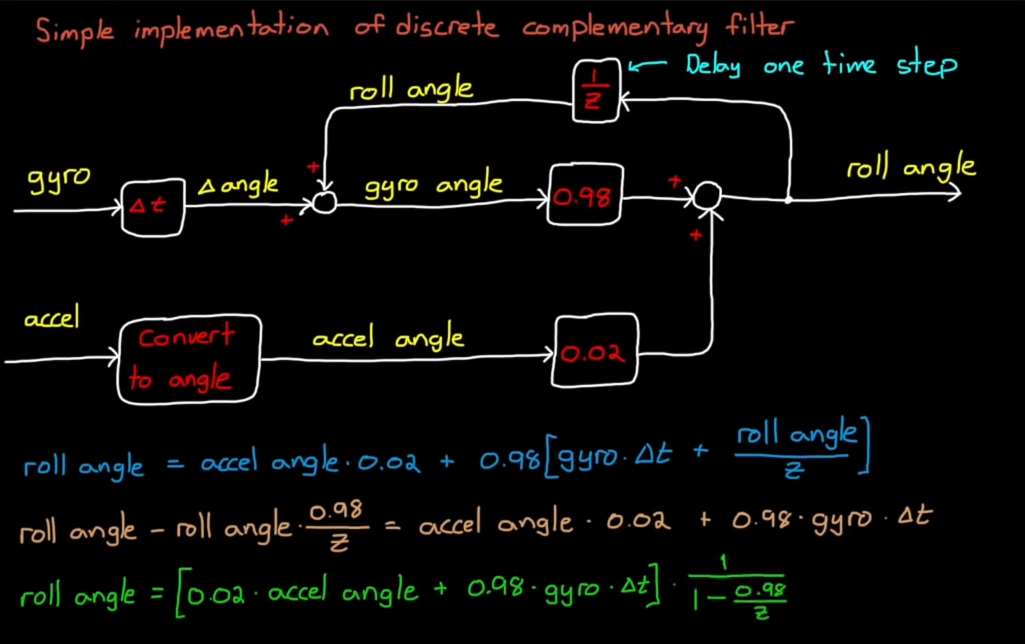 Simple implementation of discrete complementary filter
← Delay one time step
roll angle
1/z
gyro
Δt
Δ angle
+
+
gyro angle
0.98
+
+
roll angle
accel
Convert
to angle
accel angle
0.02
roll angle = accel angle · 0.02 + 0.98[gyro · Δt + roll angle/z]
roll angle - roll angle · 0.98/z = accel angle · 0.02 + 0.98 · gyro · Δt
roll angle = [0.02 · accel angle + 0.98 · gyro · Δt] · 1/(1 - 0.98/z)